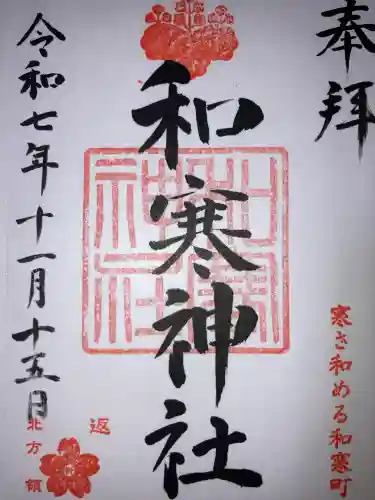 奉拝
寒さ和める和寒町
和寒神社
和寒神社
返
北方領
令和七年十一月十五日